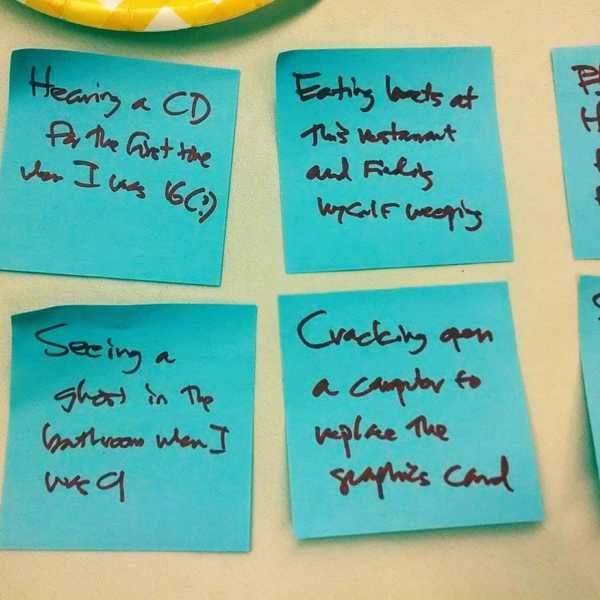 Hearing a CD
for the first time
when I was 16(!)
Eating beets at
this restaurant
and finding
myself weeping
Seeing a
ghost in the
bathroom when I
was 9
Cracking open
a computer to
replace the
graphics card